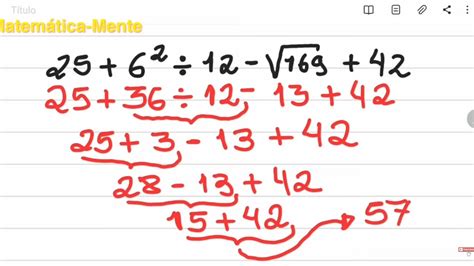 Título
Matemática-Mente
25 + 6² ÷ 12 - √169 + 42
25 + 36 ÷ 12 - 13 + 42
25 + 3 - 13 + 42
28 - 13 + 42
15 + 42 → 57